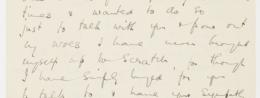 times I wanted to do so
just to talk with you & pour out
my woes I have never brought
myself up to scratch, for though
I have simply longed for you
to talk to & have your sympathy